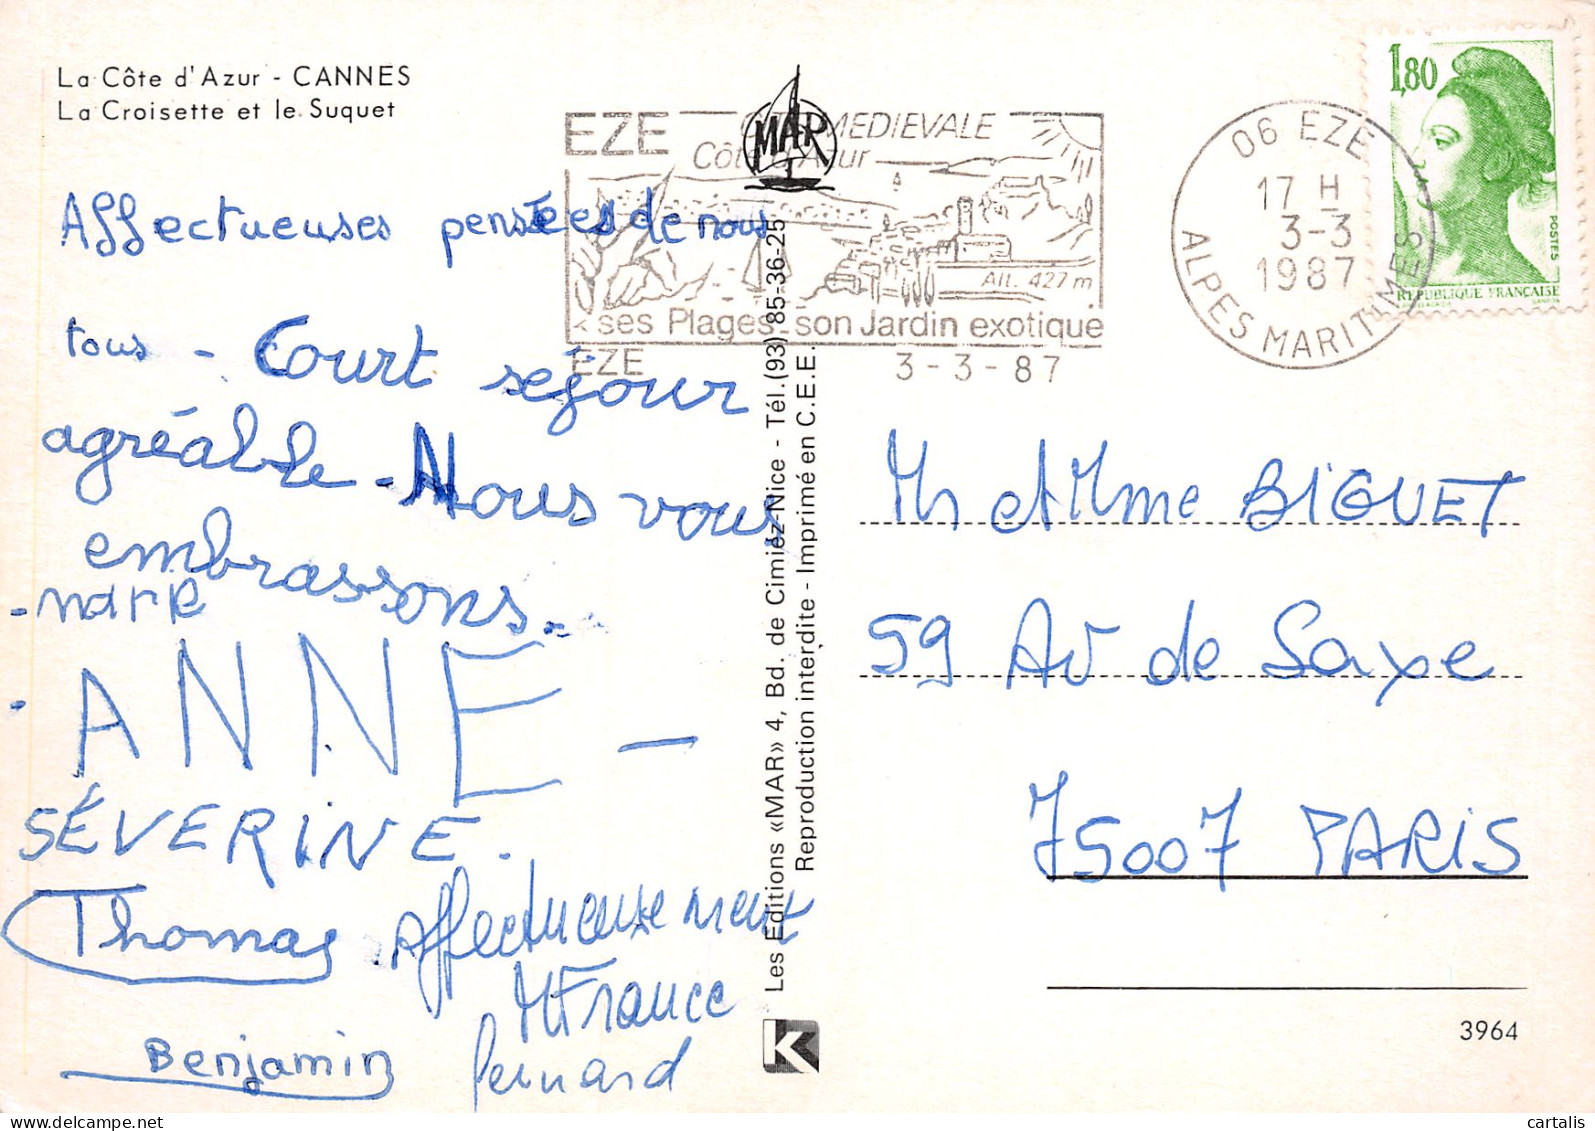 La Côte d'Azur - CANNES
La Croisette et le Suquet
EZE MEDIEVALE
Côte d'Azur
MAR
Alt. 427 m
ses Plages - son Jardin exotique
EZE 3-3-87
06 EZE
17 H
3-3
1987
ALPES MARITIMES
1,80
POSTES
REPUBLIQUE FRANÇAISE
Affectueuses pensées de nous
tous - Court séjour
agréable - Nous vous
embrassons.
- Marie
- ANNE -
SÉVERINE.
Thomas
Affectueusement
MFrance
Bernard
Benjamin
Les Editions «MAR» 4, Bd. de Cimiez-Nice - Tél.(93) 85-36-25
Reproduction interdite - Imprimé en C.E.E.
K
Mr et Mme BIGUET
59 Av de Saxe
75007 PARIS
3964
cartalis